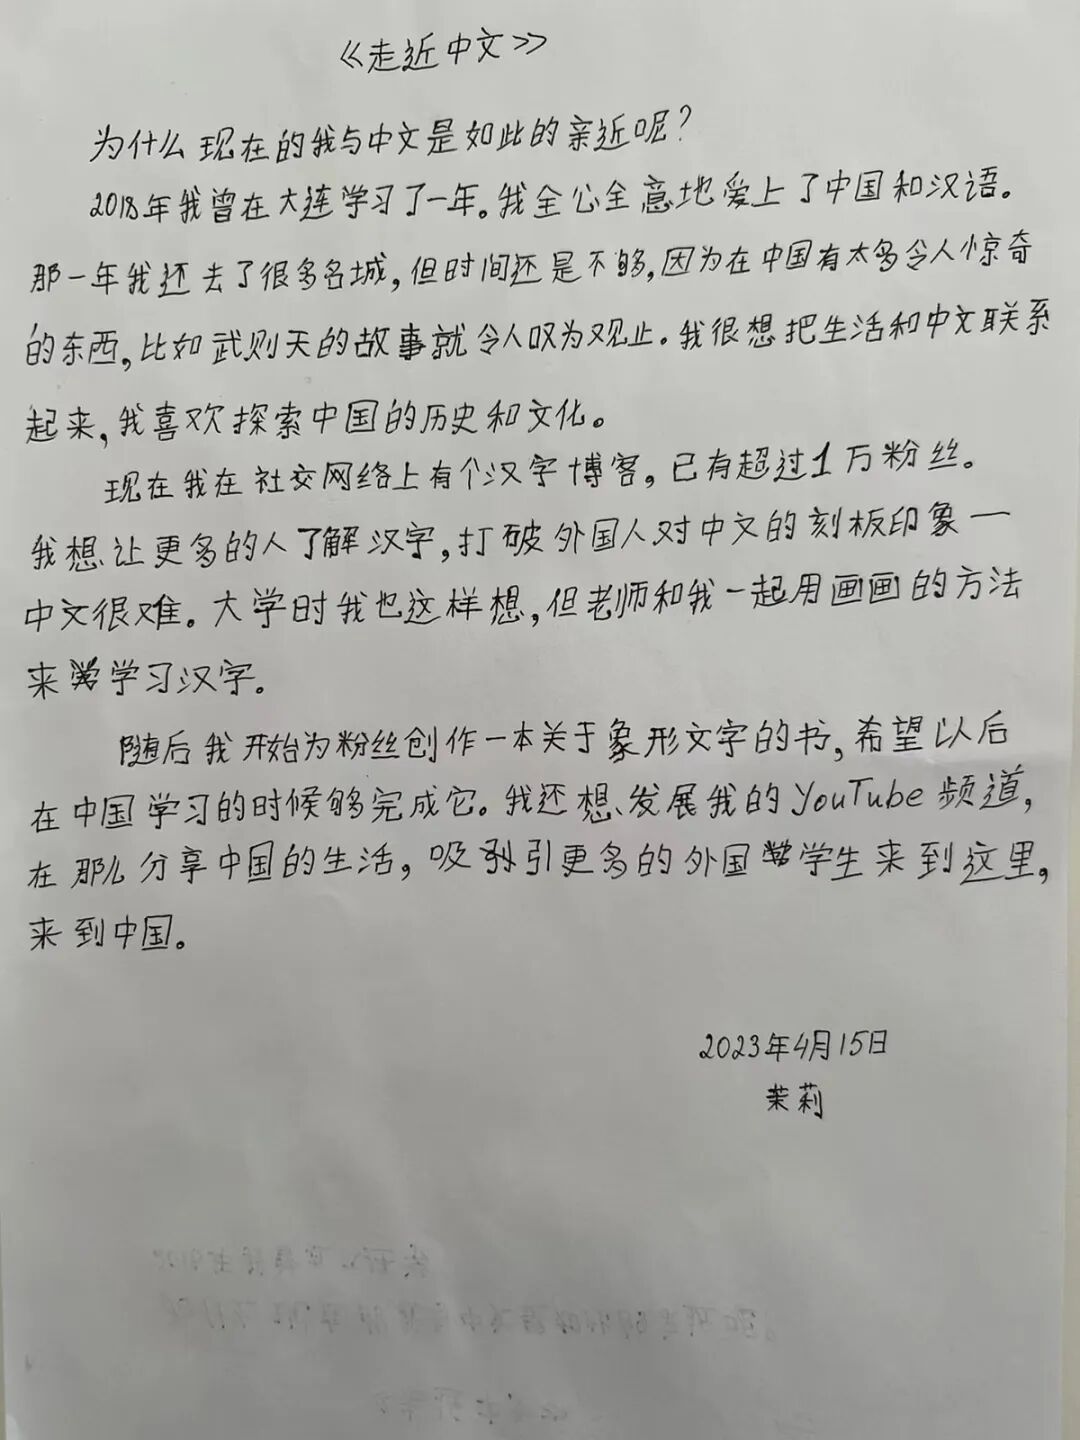 《走近中文》
为什么现在的我与中文是如此的亲近呢?
2018年我曾在大连学习了一年。我全公全意地爱上了中国和汉语。
那一年我还去了很多名城,但时间还是不够,因为在中国有太多令人惊奇
的东西,比如武则天的故事就令人叹为观止。我很想把生活和中文联系
起来,我喜欢探索中国的历史和文化。
现在我在社交网络上有个汉字博客,已有超过1万粉丝。
我想让更多的人了解汉字,打破外国人对中文的刻板印象一
中文很难。大学时我也这样想,但老师和我一起用画画的方法
来学习汉字。
随后我开始为粉丝创作一本关于象形文字的书,希望以后
在中国学习的时候够完成它。我还想发展我的YouTube频道,
在那么分享中国的生活,吸引更多的外国学生来到这里,
来到中国。
2023年4月15日
茉莉